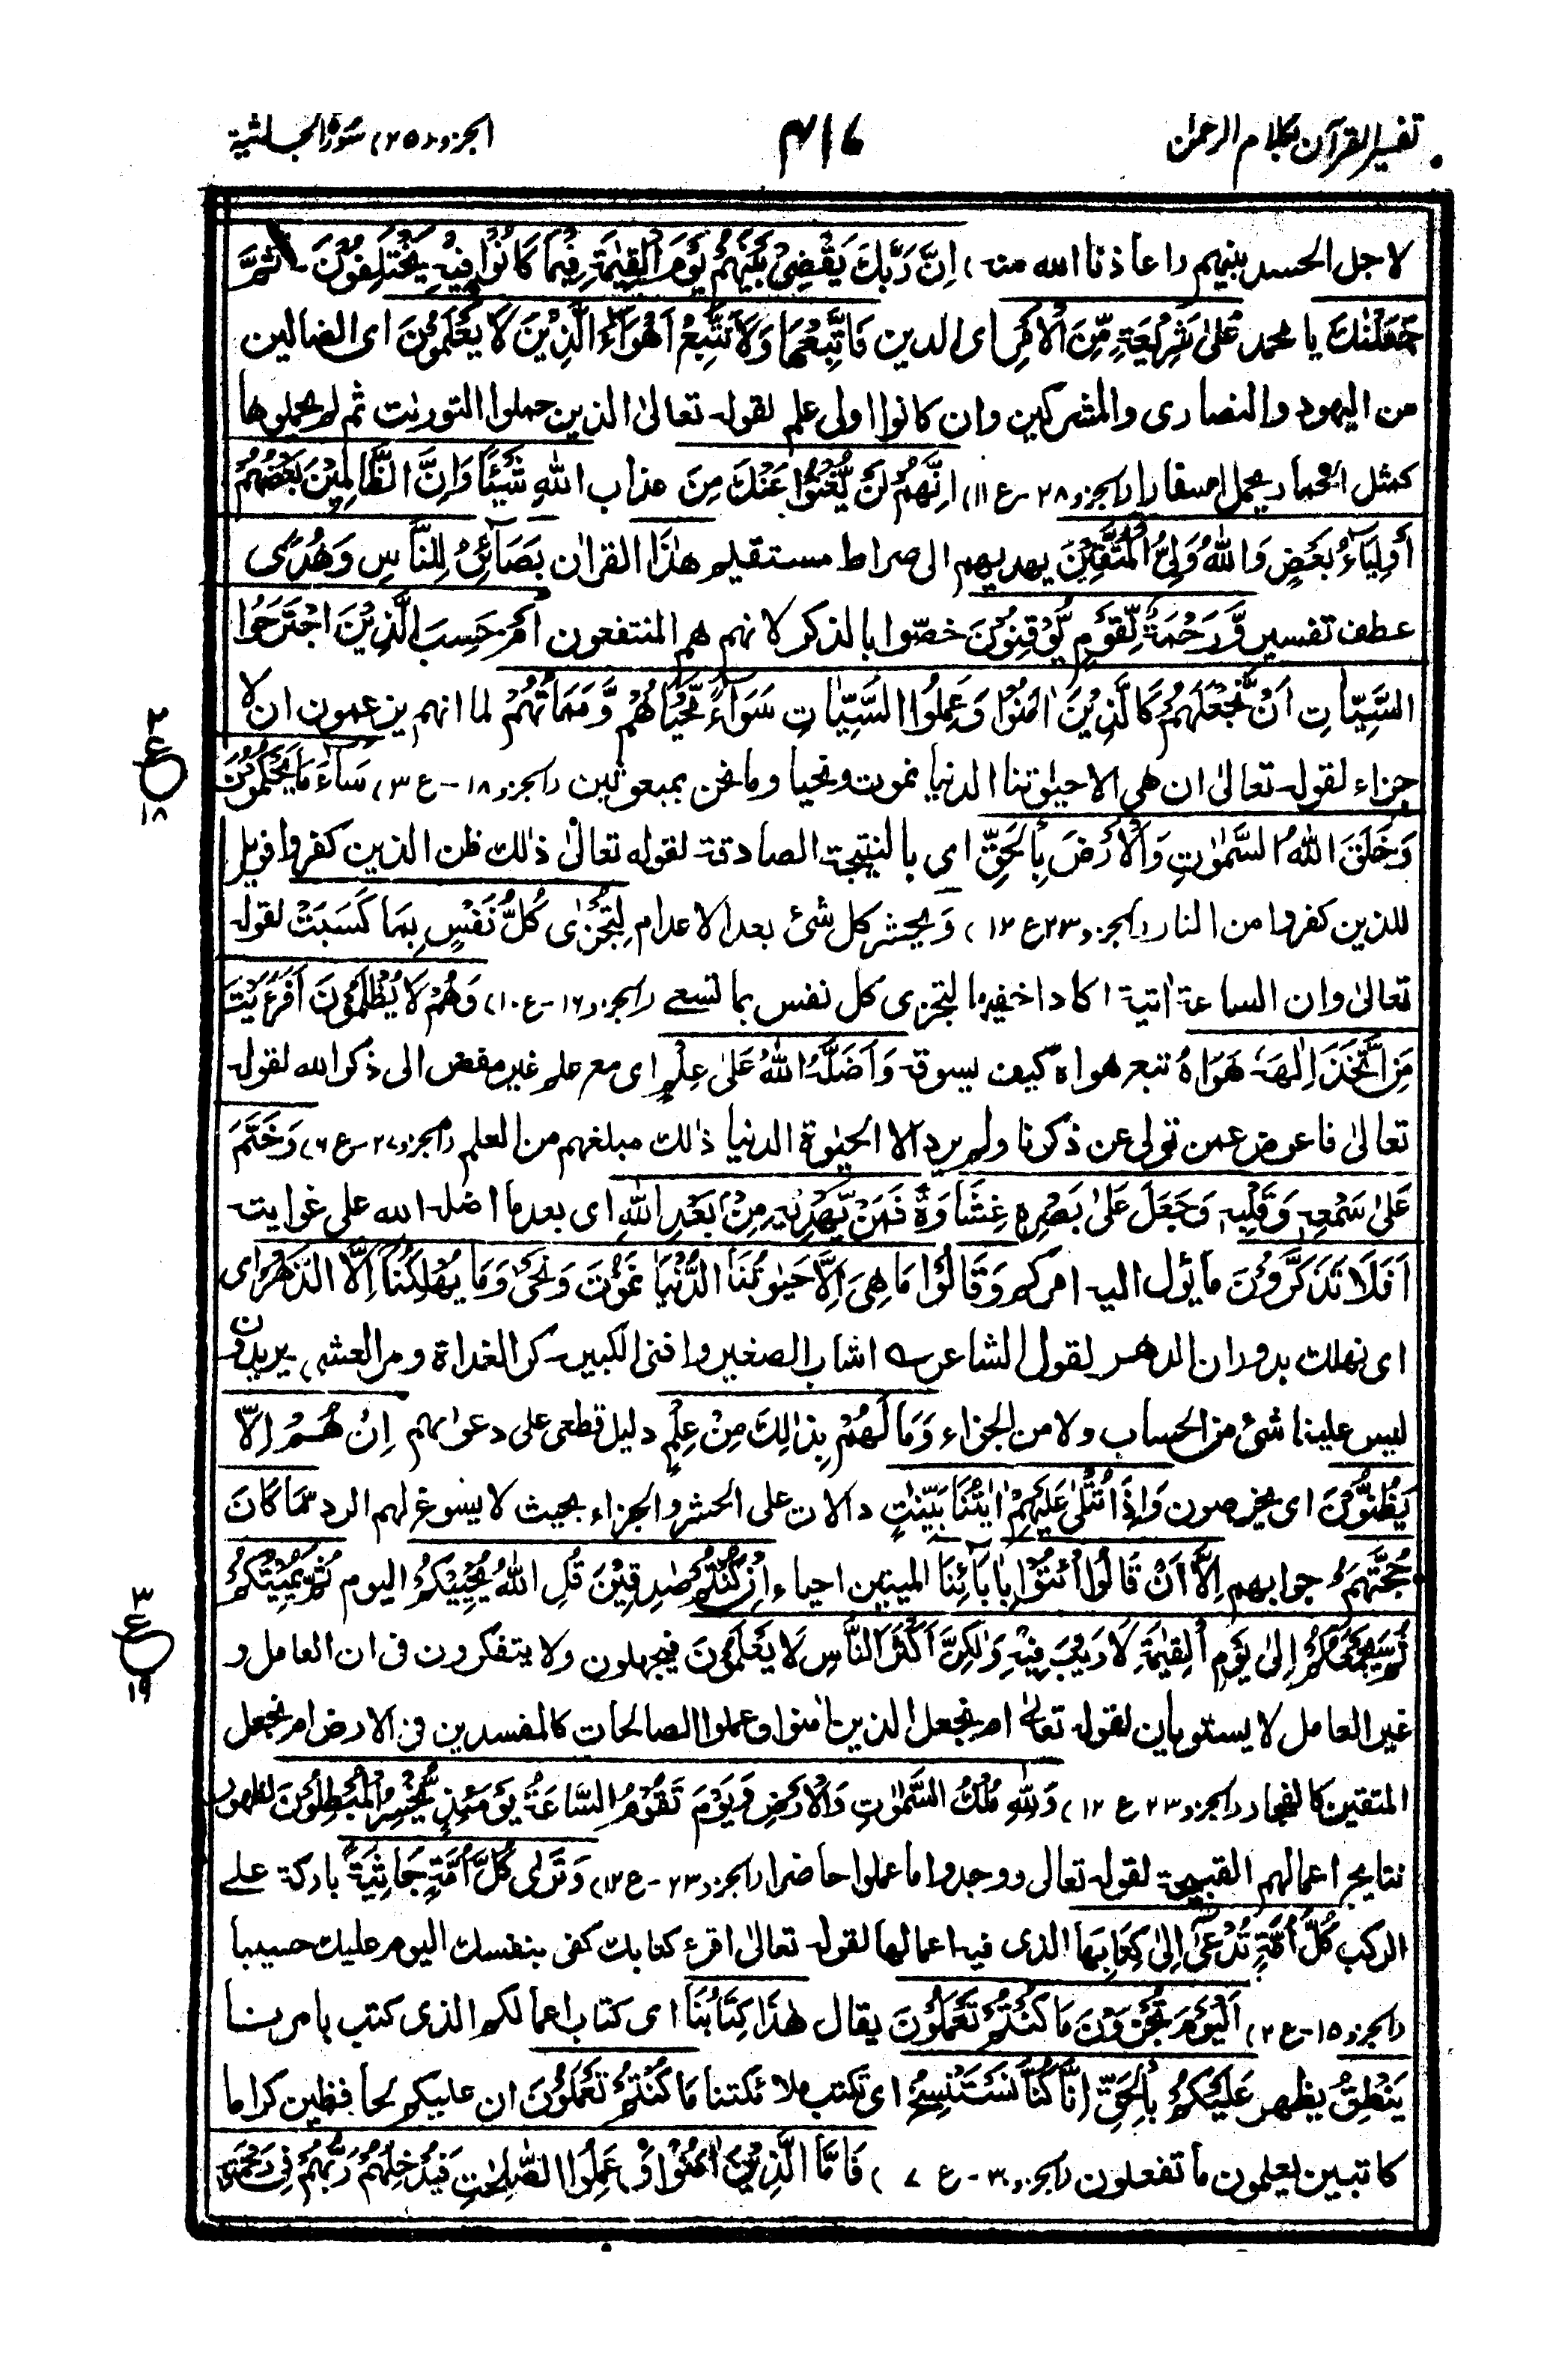 تفسير القرآن بكلام الرحمٰن
٣١٦
الجزو(٢٥) سورة الجاثية
لاجل الحسد بينهم (اعاذنا الله منه) اِنَّ رَبَّكَ يَقْضِىْ بَيْنَهُمْ يَوْمَ الْقِيٰمَةِ فِيْمَا كَانُوْا فِيْهِ يَخْتَلِفُوْنَ ثُمَّ
جَعَلْنٰكَ يا محمد عَلٰى شَرِيْعَةٍ مِّنَ الْاَمْرِ اى الدين فَاتَّبِعْهَا وَلَا تَتَّبِعْ اَهْوَآءَ الَّذِيْنَ لَا يَعْلَمُوْنَ اى الضالين
من اليهود والنصارى والمشركين وان كانوا اولى علم لقوله تعالىٰ الذين حملوا التورىٰت ثم لم يحملوها
كمثل الحمار يحمل اسفارا (الجزو ٢٨-ع ١١) اِنَّهُمْ لَنْ يُّغْنُوْا عَنْكَ مِنَ عذاب اللّٰهِ شَيْئًا وَاِنَّ الظّٰالِمِيْنَ بَعْضُهُمْ
اَوْلِيَآءُ بَعْضٍ وَاللّٰهُ وَلِىُّ الْمُتَّقِيْنَ يهديهم الى صراط مستقيم هٰذَا القراٰن بَصَآئِرُ لِلنَّاسِ وَهُدًى
عطف تفسير وَّرَحْمَةٌ لِّقَوْمٍ يُّوْقِنُوْنَ خصّوا بالذكر لانهم هم المنتفعون اَمْ حَسِبَ الَّذِيْنَ اجْتَرَحُوا
السَّيِّاٰتِ اَنْ نَّجْعَلَهُمْ كَالَّذِيْنَ اٰمَنُوْا وَعَمِلُوا السَّيِّاٰتِ سَوَآءً مَّحْيَاهُمْ وَمَمَاتُهُمْ لما انهم يزعمون ان لا
جزاء لقوله تعالىٰ ان هى الا حيٰوتنا الدنيا نموت ونحيا وما نحن بمبعوثين (الجزو ١٨-ع ٣) سَآءَ مَا يَحْكُمُوْنَ
وَخَلَقَ اللّٰهُ السَّمٰوٰتِ وَالْاَرْضَ بِالْحَقِّ اى بالنتيجة الصادقة لقوله تعالىٰ ذٰلك ظن الذين كفروا فويل
للذين كفروا من النار (الجزو ٢٣ع ١٢) وَ يحشر كل شئ بعد الاعدام لِتُجْزٰى كُلُّ نَفْسٍ بِمَا كَسَبَتْ لقوله
تعالىٰ وان الساعة اٰتية اكاد اخفيها لتجزى كل نفس بما تسعى (الجزو ١٦-ع ١٠) وَهُمْ لَا يُظْلَمُوْنَ اَفَرَءَيْتَ
مَنِ اتَّخَذَ اِلٰهَهٗ هَوَاهُ تتبع هواه كيف يسوقه وَاَضَلَّهُ اللّٰهُ عَلٰى عِلْمٍ اى مع علم غير مفض الى ذكر الله لقوله
تعالىٰ فاعرض عمن تولى عن ذكرنا ولم يرد الا الحيٰوة الدنيا ذٰلك مبلغهم من العلم (الجزو ٢٧-ع ٦) وَخَتَمَ
عَلٰى سَمْعِهٖ وَقَلْبِهٖ وَجَعَلَ عَلٰى بَصَرِهٖ غِشَاوَةً فَمَنْ يَّهْدِيْهِ مِنْ بَعْدِ اللّٰهِ اى بعد ما اضله الله على غوايته
اَفَلَا تَذَكَّرُوْنَ ما ئول اليه امركم وَقَالُوْا مَا هِىَ اِلَّا حَيٰوتُنَا الدُّنْيَا نَمُوْتُ وَنَحْىَ وَمَا يُهْلِكُنَا اِلَّا الدَّهْرُ اى
اى نهلك بدوران الدهر لقول الشاعر ؎ اشاب الصغير وافنى الكبير۔ كر الغداة ومر العشى يريدون
ليس علينا شئ من الحساب ولا من الجزاء وَمَا لَهُمْ بِذٰالِكَ مِنْ عِلْمٍ دليل قطعى على دعواهم اِنْ هُمْ اِلَّا
يَظُنُّوْنَ اى يخرصون وَاِذَا تُتْلٰى عَلَيْهِمْ اٰيٰتُنَا بَيِّنٰتٍ دالات على الحشر والجزاء بحيث لا يسوغ لهم الرد مَّا كَانَ
حُجَّتَهُمْ جوابهم اِلَّآ اَنْ قَالُوا ائْتُوْا بِاٰبَآئِنَا الميتين احياء اِنْ كُنْتُمْ صٰدِقِيْنَ قُلِ اللّٰهُ يُحْيِيْكُمْ اليوم ثُمَّ يُمِيْتُكُمْ
ثُمَّ يَجْمَعُكُمْ اِلٰى يَوْمِ الْقِيٰمَةِ لَا رَيْبَ فِيْهِ وَلٰكِنَّ اَكْثَرَ النَّاسِ لَا يَعْلَمُوْنَ فيجهلون ولا يتفكرون فى ان العامل و
غير العامل لا يستويان لقوله تعالىٰ ام نجعل الذين اٰمنوا وعملوا الصالحات كالمفسدين فى الارض ام نجعل
المتقين كالفجار (الجزو ٢٣ ع ١٢) وَلِلّٰهِ مُلْكُ السَّمٰوٰتِ وَالْاَرْضِ وَيَوْمَ تَقُوْمُ السَّاعَةُ يَوْمَئِذٍ يَّخْسَرُ الْمُبْطِلُوْنَ لظهور
نتايج اعمالهم القبيحة لقوله تعالى ووجدوا ما عملوا حاضرا (الجزو ٢٣-ع ١٢) وَتَرٰى كُلَّ اُمَّةٍ جَاثِيَةً باركة على
الركب كُلُّ اُمَّةٍ تُدْعٰى اِلٰى كِتَابِهَا الذى فيه اعمالها لقوله تعالىٰ اقرء كتابك كفى بنفسك اليوم عليك حسيبا
(الجزو ١٥-ع ٢) اَلْيَوْمَ تُجْزَوْنَ مَا كُنْتُمْ تَعْمَلُوْنَ يقال هٰذَا كِتَابُنَا اى كتاب اعمالكم الذى كتب بامرنا
يَنْطِقُ يظهر عَلَيْكُمْ بِالْحَقِّ اِنَّا كُنَّا نَسْتَنْسِخُ اى تكتب ملائكتنا مَا كُنْتُمْ تَعْمَلُوْنَ ان عليكم لحافظين كراما
كاتبين يعلمون ما تفعلون (الجزو ٣٠-ع ٧) فَاَمَّا الَّذِيْنَ اٰمَنُوْا وَ عَمِلُوا الصّٰلِحٰتِ فَيُدْخِلُهُمْ رَبُّهُمْ فِىْ رَحْمَتِهٖ
٢
ع
١٨
٣
ع
١٩